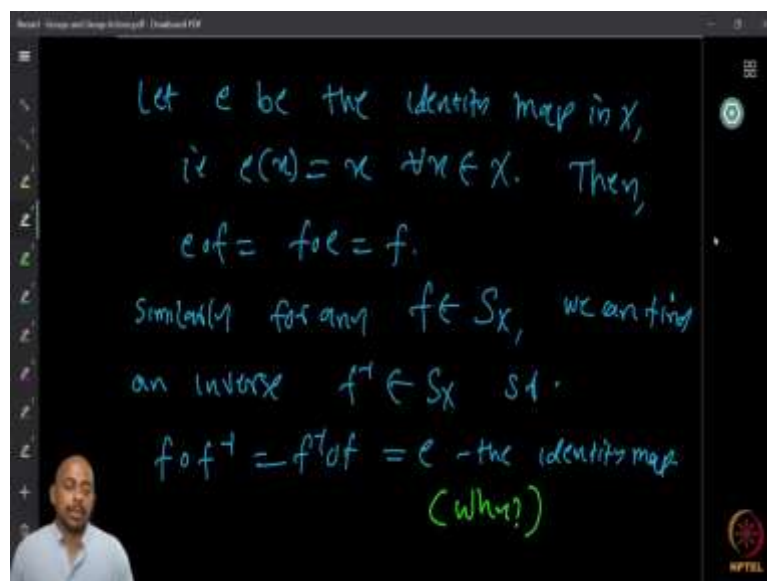 Let e be the identity map in X,
ie e(x) = x ∀x ∈ X. Then,
eof = foe = f.
Similarly for any f ∈ Sₓ, we can find
an inverse f⁻¹ ∈ Sₓ st.
f o f⁻¹ = f⁻¹ o f = e - the identity map
(Why?)
NPTEL